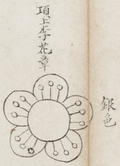 項上李花章
銀色